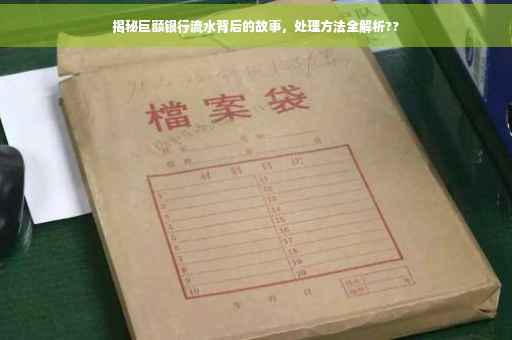 揭秘巨额银行流水背后的故事，处理方法全解析??
檔案袋
材料目次
1 11
2 12
3 13
4 14
5 15
6 16
7 17
8 18
9 19
10 20
年 月 日